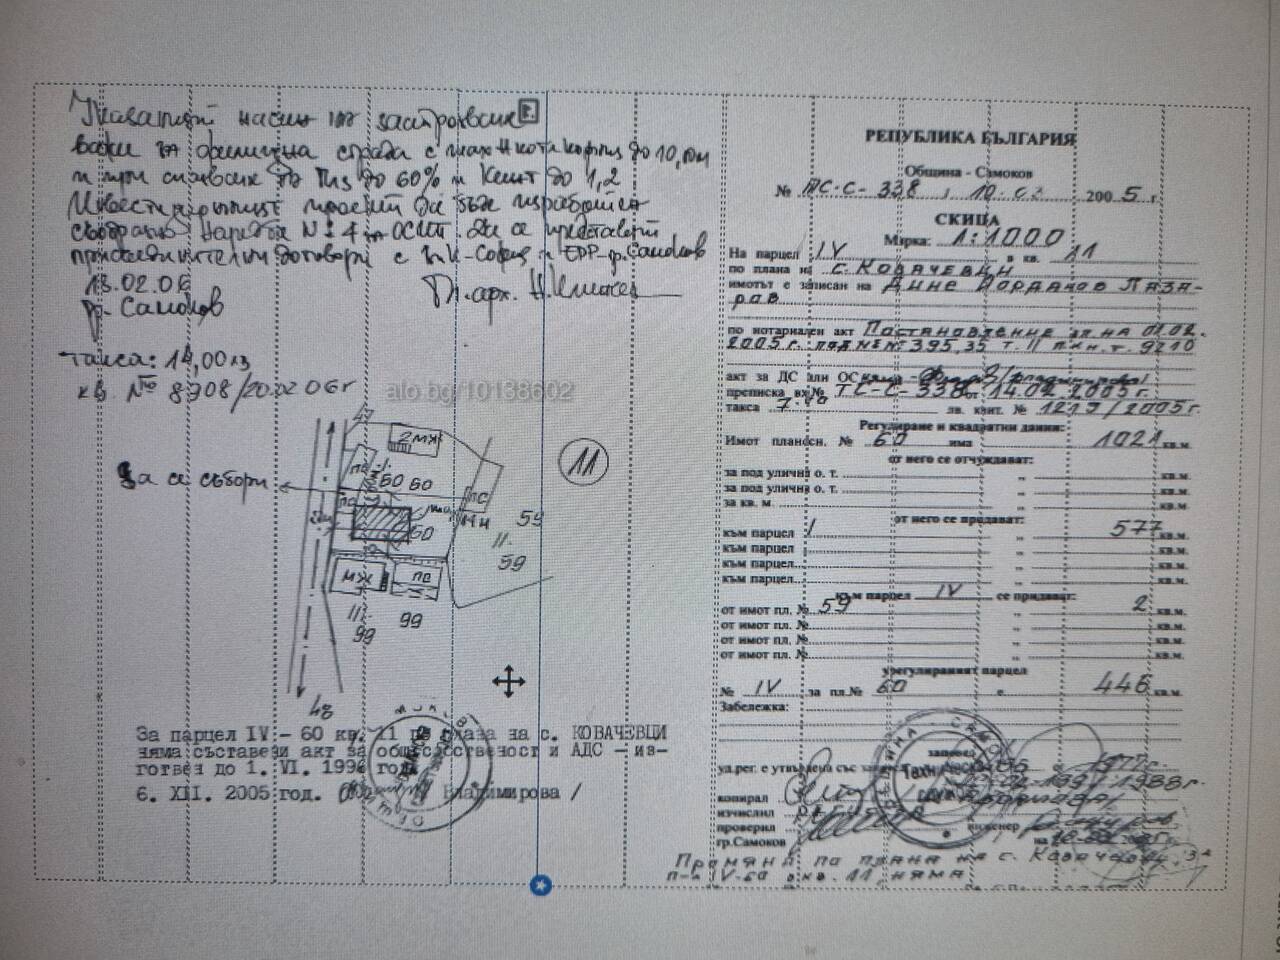 Указаният начин на застрояване
важи за фамилна сграда с мах Н кота корниз до 10,0м
и при спазване на Пз до 60% и Кинт до 1,2
Инвестиционните проекти да бъде изработен
съобразно Наредба № 4 на ОСИП. Да се представят
присъединителни договори с ВиК-София и ЕРР-гр. Самоков
13.02.06
гр. Самоков
Гл. арх.
такса: 14,00 лв
кв. № 8908/20.02.06г
alo.bg/10138602
За се събори
47
2МЖ
11
ПС
60 60
ПС
59
60
59
МЖ
ПС
99
99
48
За парцел IV - 60 кв. 11 по плана на с. КОВАЧЕВЦИ
няма съставен акт за общ.собственост и АДС - из-
готвен до 1. VI. 1996 год.
6. XII. 2005 год. Владимирова /
РЕПУБЛИКА БЪЛГАРИЯ
Община - Самоков
№ ТС-С-338, 10.02. 2005 г.
СКИЦА
Мярка: 1:1000
На парцел IV в кв. 11
по плана на с. Ковачевци
имотът е записан на Дине Йорданов Лаза-
ров
по нотариален акт Постановление от на 01.02.
2005г. под № 395, 35 т. II 9210
акт за ДС или ОС
преписка вх. № ТС-С-338 от 14.02.2005г.
такса 7.00 лв. квит. № 1219/2005г.
Регулиране и квадратни данни:
Имот плансн. № 60 има 1021 кв.м.
от него се отчуждават:
за под улични о. т. " кв.м.
за под улични о. т. " кв.м.
за кв. м. " кв.м.
от него се придават:
към парцел I " 577 кв.м.
към парцел " кв.м.
към парцел " кв.м.
към парцел " кв.м.
към парцел IV се придават:
от имот пл. № 59 " 2 кв.м.
от имот пл. № " кв.м.
от имот пл. № " кв.м.
от имот пл. № " кв.м.
урегулираният парцел
№ IV за пл.№ 60 е 446 кв.м.
Забележка:
ул.рег. е утвърдена със заповед
1988г.
копирал
изчислил
проверил инженер
гр.Самоков на
Промяна по плана на с. Ковачевци за
п-л IV-60 в кв. 11, няма